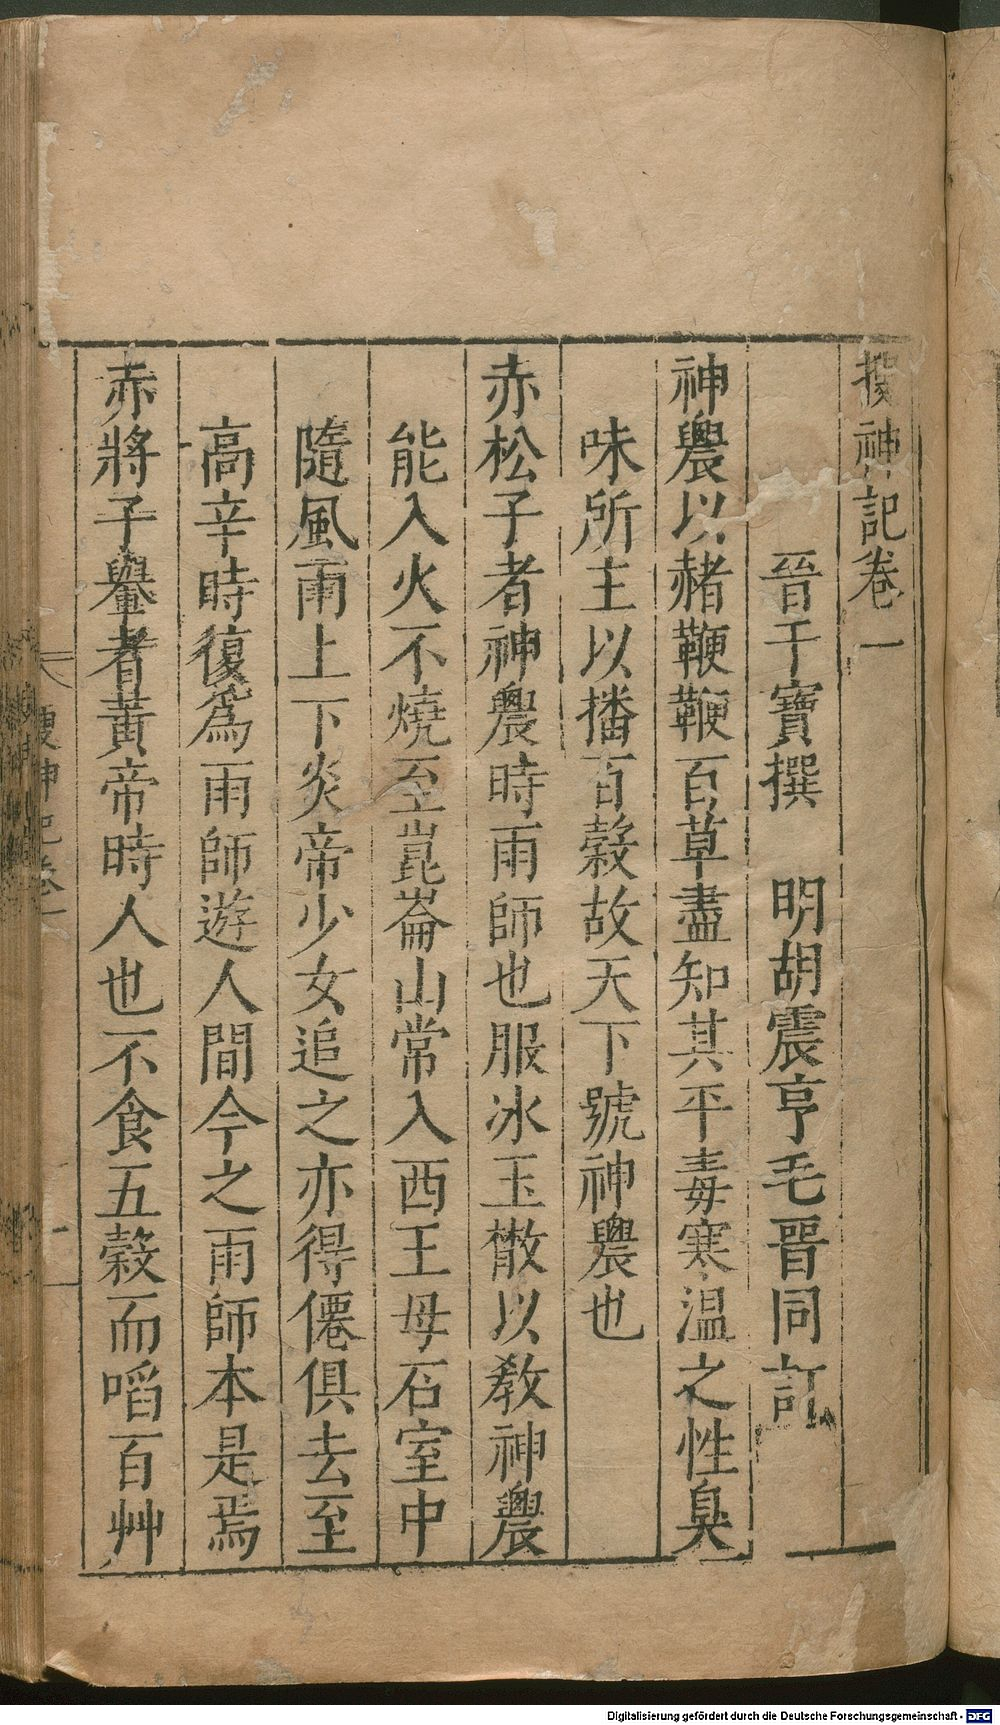 搜神記卷一
晉干寶撰 明胡震亨毛晉同訂
神農以赭鞭鞭百草盡知其平毒寒溫之性臭
味所主以播百穀故天下號神農也
赤松子者神農時雨師也服冰玉散以教神農
能入火不燒至崑崙山常入西王母石室中
隨風雨上下炎帝少女追之亦得僊俱去至
高辛時復爲雨師遊人間今之雨師本是焉
赤將子轝者黃帝時人也不食五穀而啗百艸
搜神記卷一
Digitalisierung gefördert durch die Deutsche Forschungsgemeinschaft - DFG